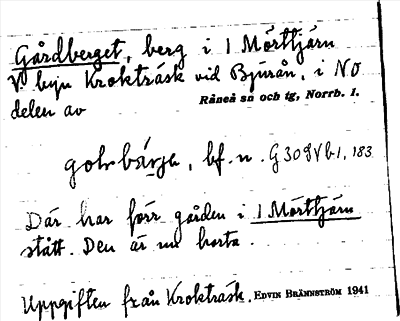 Gårdberget, berg i 1 Mörttjärn
V. byn Krokträsk vid Bjurån, i NO
delen av Råneå sn och tg, Norrb. l.
bf. n. G3098Vb1, 183
Där har förr gården i 1 Mörttjärn
stått. Den är nu borta.
Uppgiften från Krokträsk. EDVIN BRÄNNSTRÖM 1941